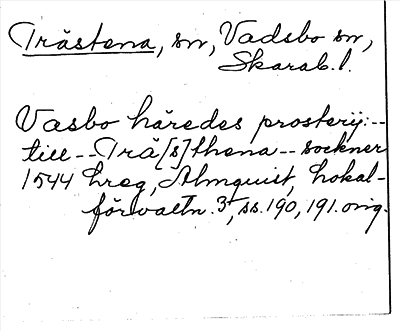 Trästena, sn, Vadsbo sn,
Skarab. l.
Vasbo häredes prosterij:--
till -- Trä[s]thena -- sockner
1544 Lreg, Almquist, Lokal-
förvaltn. 3, ss. 190, 191. orig.